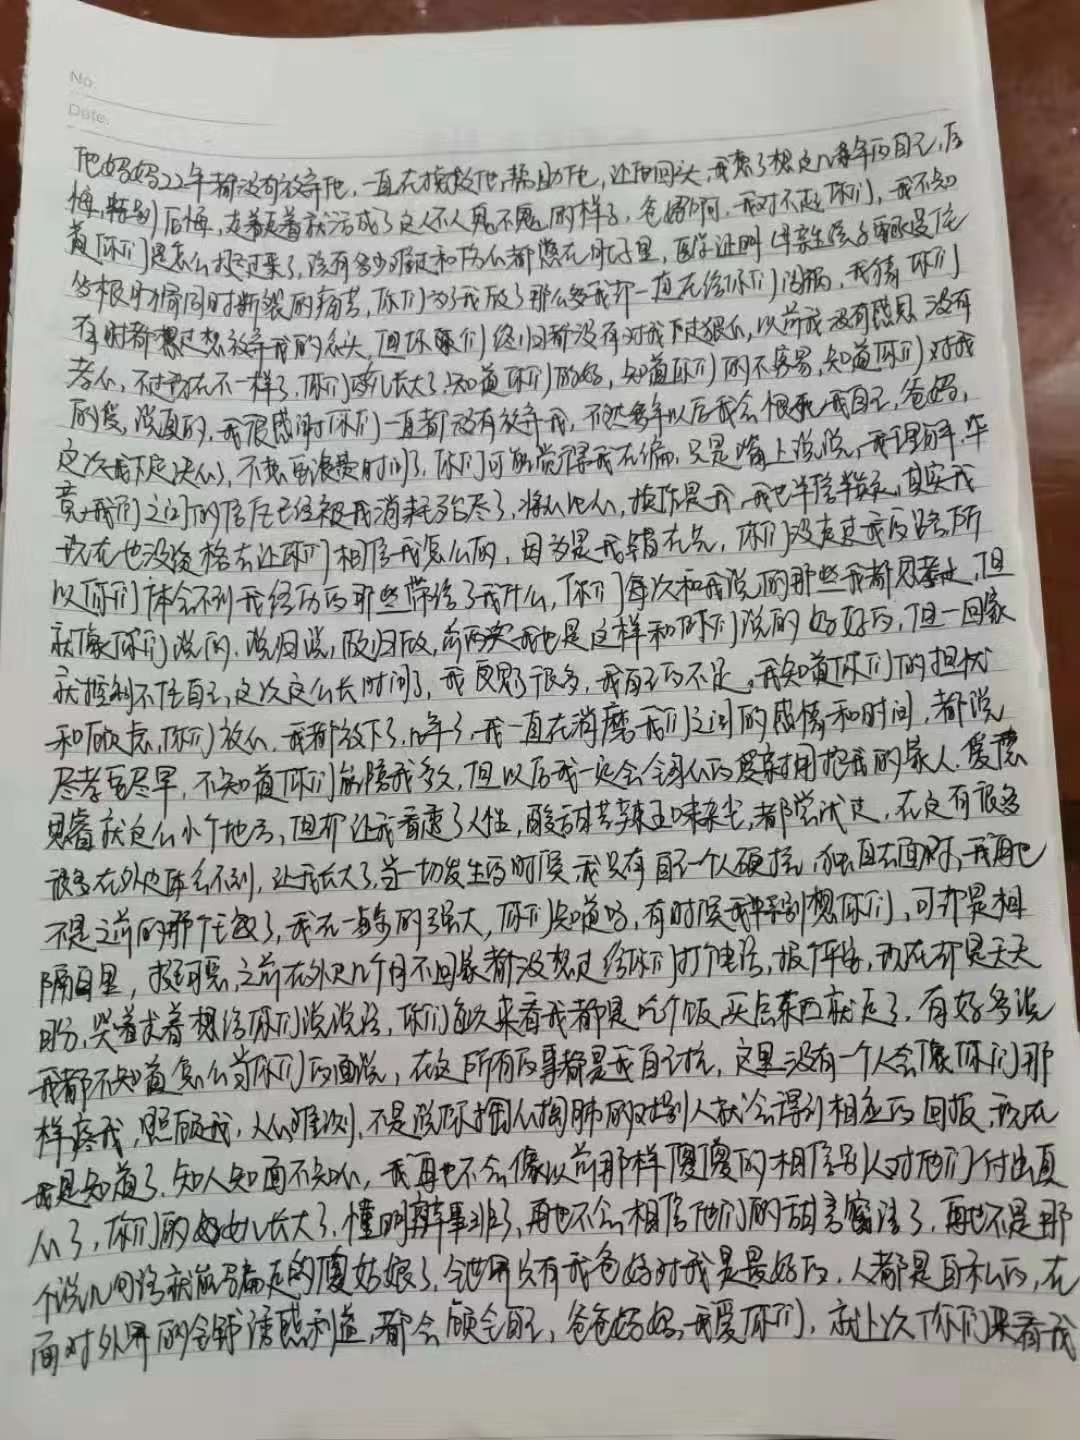 No.
Date.
他妈妈22年都没有放弃他,一直在拯救他,帮助他,让他回头,我想了想这几年的自己,后
悔,特别后悔,走着走着就活成了这人不人鬼不鬼的样子,爸妈啊,我对不起你们,我不知
道你们是怎么挺过来了,该有多少难过和伤心都憋在肚子里,医学证明母亲生孩子
根肋骨同时断裂的痛苦,你们为了我放了那么多我却一直在给你们闯祸,我猜你们
有时都想过想放弃我的念头,但你们终归都没有对我下过狠心,以前我没有感恩没有
孝心,不过现在不一样了,你们女儿长大了,知道你们的好,知道你们的不容易,知道你们对我
的爱,说真的,我很感谢你们一直都没有放弃我,不然多年以后我会恨死我自己,爸妈,
这次我下定决心了,不想再浪费时间了,你们可能觉得我在编,只是嘴上说说,我理解,毕
竟我们之间的信任已经被我消耗殆尽了,将心比心,换作是我,我也半信半疑,其实我
现在也没资格去让你们相信我怎么的,因为是我错在先,你们没走过我的路所
以你们体会不到我经历的那些带给了我什么,你们每次和我说的那些我都思考过,但
就像你们说的,说归说,做归做,前两次我也是这样和你们说的好好的,但一回家
就控制不住自己,这次这么长时间了,我反思了很多,我自己的不足,我知道你们的担忧
和顾虑,你们放心,我都放下了,几年了,我一直在消磨我们之间的感情和时间,都说
尽孝要尽早,不知道你们能陪我多久,但以后我一定会全身心的爱和拥抱我的家人,
就这么小个地方,但却让我看透了人性,酸甜苦辣五味杂尘,都尝试过,在这有很多
很多在外边体会不到,让我长大了,当一切发生的时候我只有自己一个人硬抗,独自去面对,我再也
不是之前的那个了,我在一步步的强大,你们知道吗,有时候我特别想你们,可却是相
隔百里,挺可悲,之前在外边几个月不回家都没想过给你们打个电话,报个平安,现在却是天天
盼,哭着求着想给你们说说话,你们每次来看我都是吃个饭,买点东西就走了,有好多话
我都不知道怎么当你们的面说,在这所有的事都是我自己扛,这里没有一个人会像你们那
样疼我,照顾我,人心难测,不是说你掏心掏肺的对别人就会得到相应的回报,现在
我是知道了,知人知面不知心,我再也不会像以前那样傻傻的相信别人对他们付出真
心了,你们的女儿长大了,懂明辨事非了,再也不会相信他们的甜言蜜语了,再也不是那
个说几句话就能骗走的傻姑娘了,全世界只有我爸妈对我是最好的,人都是自私的,在
面对外界的金钱诱惑利益,都会顾全自己,爸爸妈妈,我爱你们,就上次你们来看我